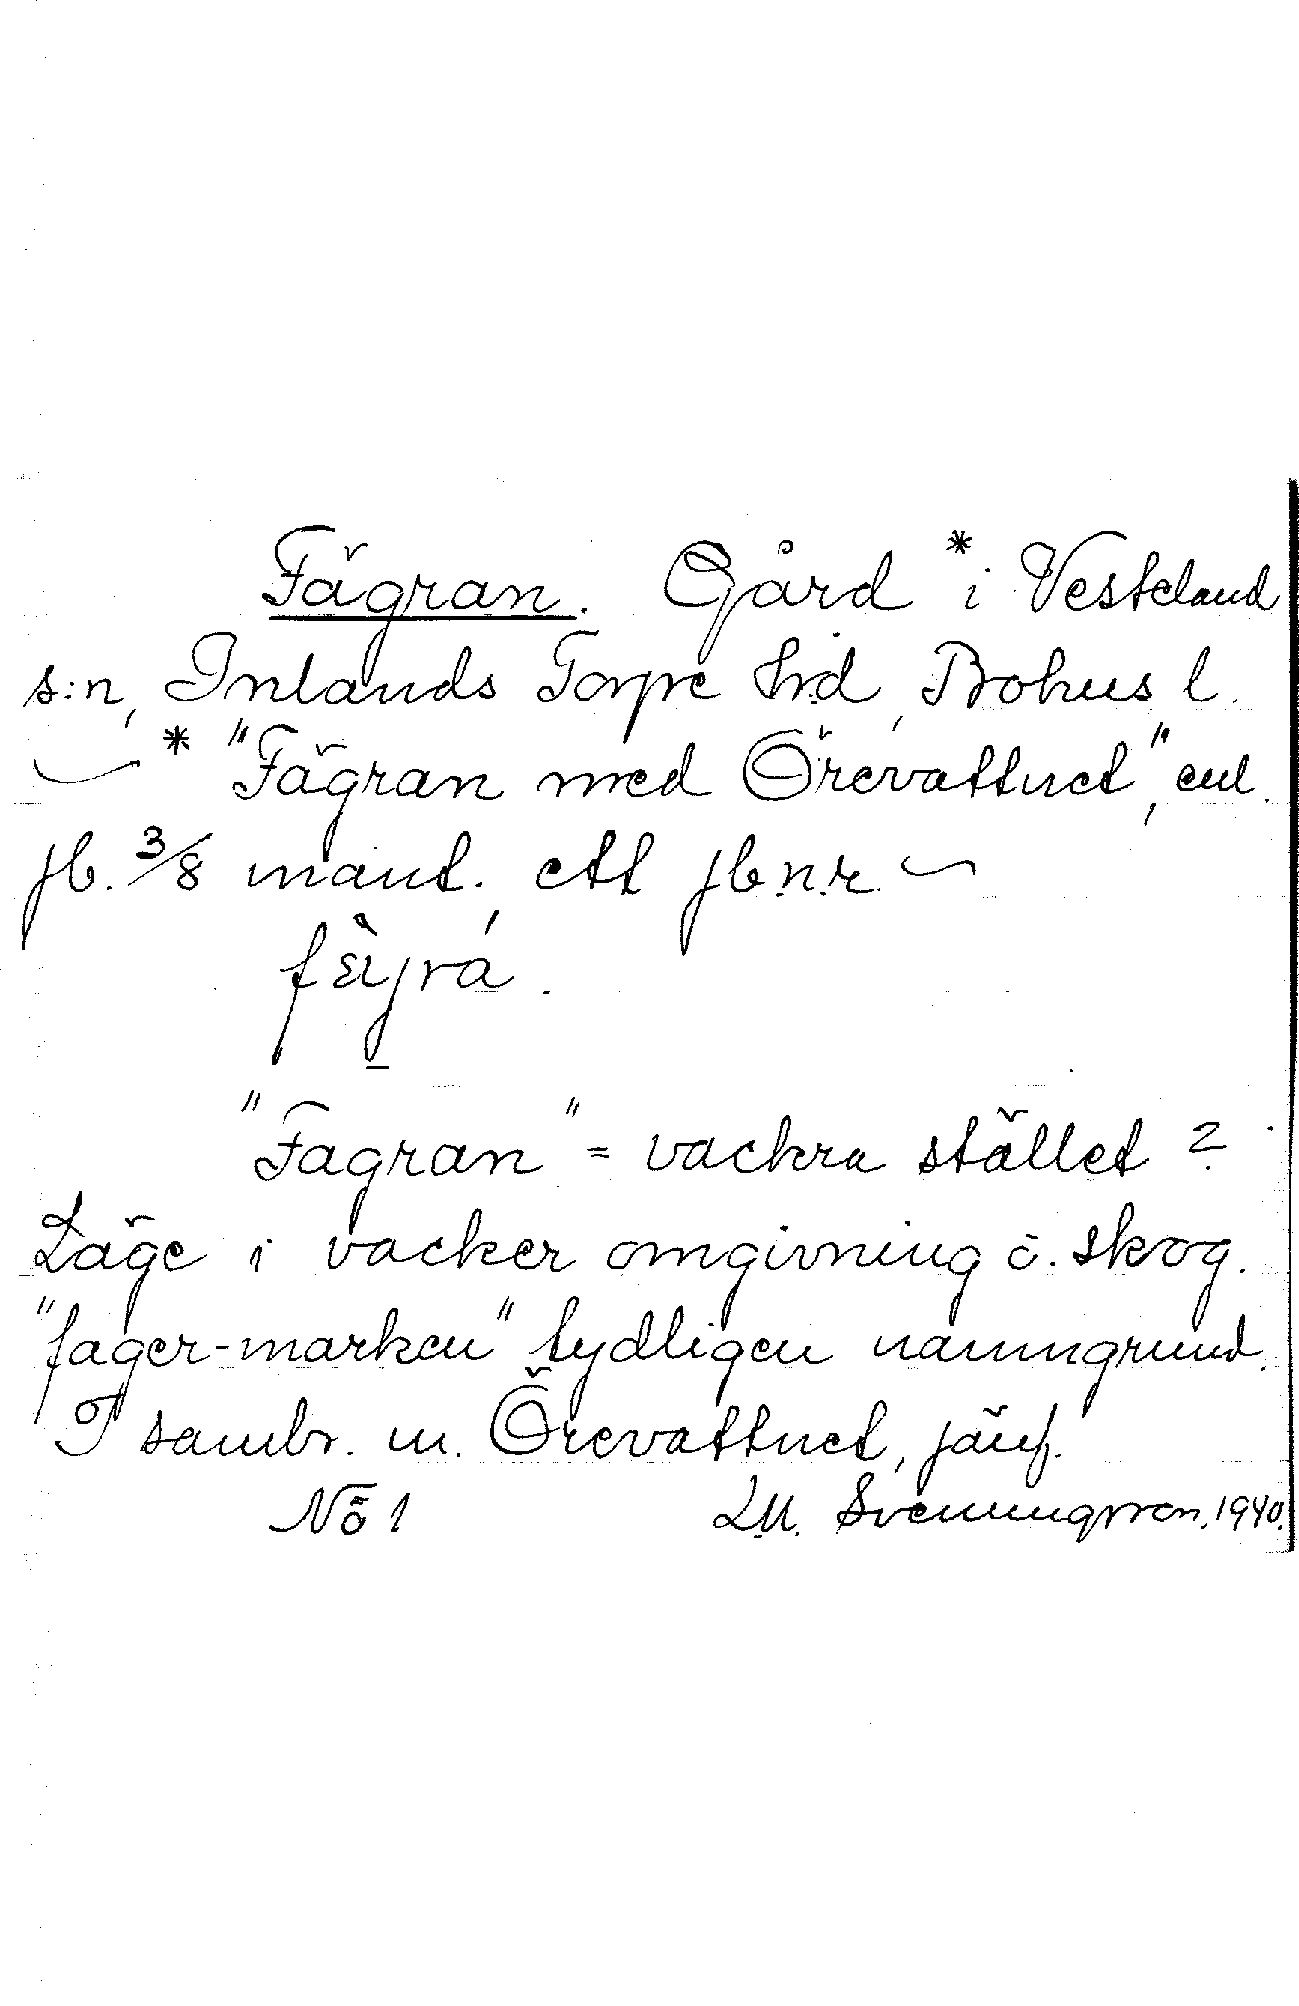 Fägran. Gård * i Vesteland
s:n, Inlands Torpe hrd, Bohus l.
* "Fägran med Örevattnet", enl.
jb. 3/8 mant. ett jb.n.r.
"Fagran" = vackra stället ?
Läge i vacker omgivning o. skog.
"fager-marken" tydligen namngrund.
I sambr. m. Örevattnet, jämf.
No 1 L.M. Svenningsson. 1940.